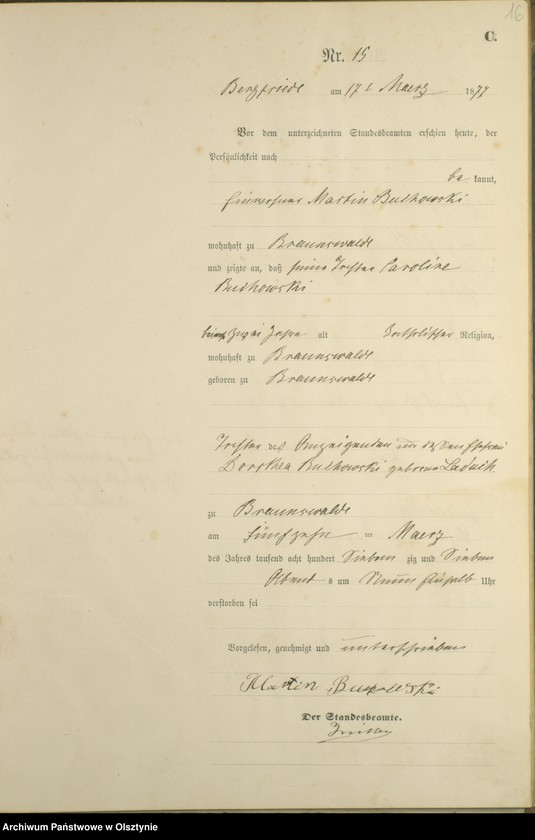 16
C.
Nr. 15
Bergfriede am 17t Maerz 1877
Vor dem unterzeichneten Standesbeamten erschien heute, der
Persönlichkeit nach
be kannt,
Einwohner Martin Buchowski
wohnhaft zu Braunswalde
und zeigte an, daß seine Tochter Caroline
Buchowski
zwei Jahre alt katholischer Religion,
wohnhaft zu Braunswalde
geboren zu Braunswalde
Tochter des Anzeigenden und dessen Ehefrau
Dorothea Buchowski geborene
zu Braunswalde
am fünfzehn ten Maerz
des Jahres tausend acht hundert Sieben zig und Sieben
Abend s um Uhr
verstorben sei
Vorgelesen, genehmigt und unterschrieben
Martin
Der Standesbeamte.
Archiwum Państwowe w Olsztynie